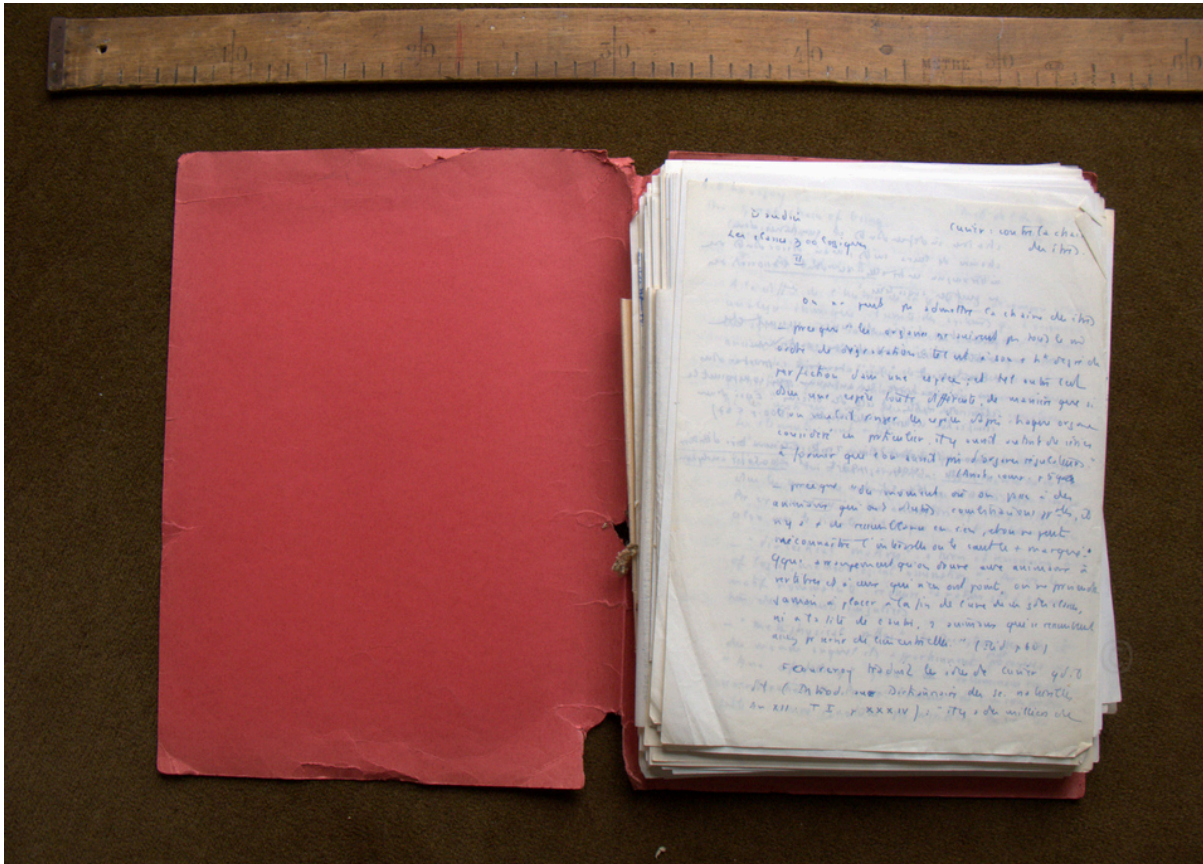 10 20 30 40 METRE 50 60
Daudin
Les classes zoologiques
II
Cuvier : contre la chaine
des êtres.
On ne peut pas admettre la chaine des êtres
— parce que "les organes ne suivent pas tous le m
ordre de dégradation : tel est à son + ht degré de
perfection dans une espèce, et tel autre l'est
dans une espèce toute différente, de manière que si
l'on voulait ranger les espèces d'après chaque organe
considéré en particulier, il y aurait autant de séries
à former que l'on aurait pris d'organes régulateurs."
(Anat. comp.
— parce que "du moment où on passe à des
animaux qui ont d'autres combinaisons ples, il
n'y a + de ressemblance en rien, et on ne peut
méconnaître l'intervalle ou le saut le + marqué."
Qque arrangement qu'on donne aux animaux à
vertèbres et à ceux qui n'en ont point, on ne
jamais à placer à la fin de l'une de ces gdes classes,
ni à la tête de l'autre, 2 animaux qui se ressemblent
assez pr servir de lien entre elles. (Ibid p 60)
traduit les idées de Cuvier qd il
dit (Introd. aux Dictionnaire des sc. naturelles
An XII. T I, p XXXIV) : "il y a des milliers de